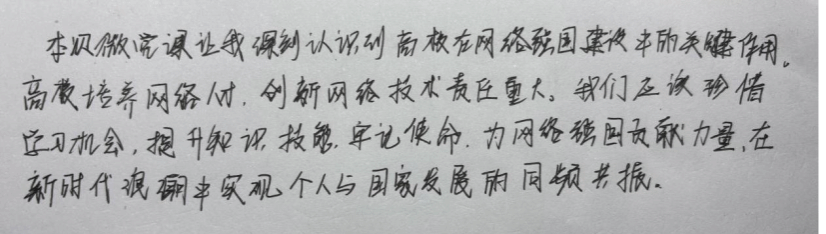 本次微党课让我深刻认识到高校在网络强国建设中的关键作用。
高校培养网络人才,创新网络技术责任重大。我们应该珍惜
学习机会,提升知识技能,牢记使命,为网络强国贡献力量,在
新时代浪潮中实现个人与国家发展的同频共振。